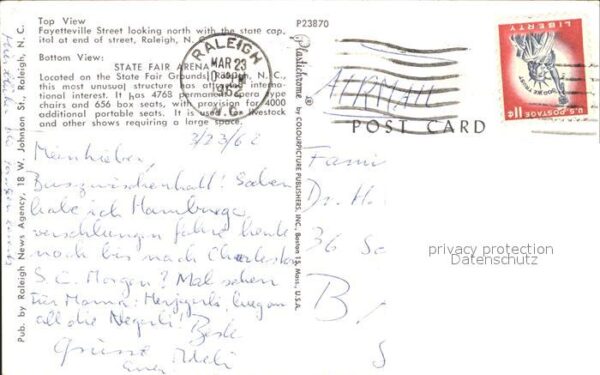 Top View
Fayetteville Street looking north with the state cap,
itol at end of street, Raleigh, N. C.
Bottom View:
STATE FAIR ARENA
Located on the State Fair Grounds, Raleigh, N. C.,
this most unusual structure has attracted interna-
tional interest. It has 4768 permanent opera type
chairs and 656 box seats, with provision for 4000
additional portable seats. It is used for livestock
and other shows requiring a large space.
3/23/62
Buszwischenhalt! Soeben
habe ich Hamburger
verschlungen fahre heute
noch bis nach Charleston
S. C. Morgen? Mal sehen
für Mama:
all die Beste
Grüsse Ueli
Pub. by Raleigh News Agency, 18 W. Johnson St., Raleigh, N. C.
P23870
Plastichrome ® by COLOURPICTURE PUBLISHERS, INC., Boston 15, Mass., U.S.A.
RALEIGH
MAR 23
1962
N.C.
AIRMAIL
POST CARD
LIBERTY
U.S. POSTAGE
11¢
Fami
Dr. H.
36 Sc
B
S
privacy protection
Datenschutz